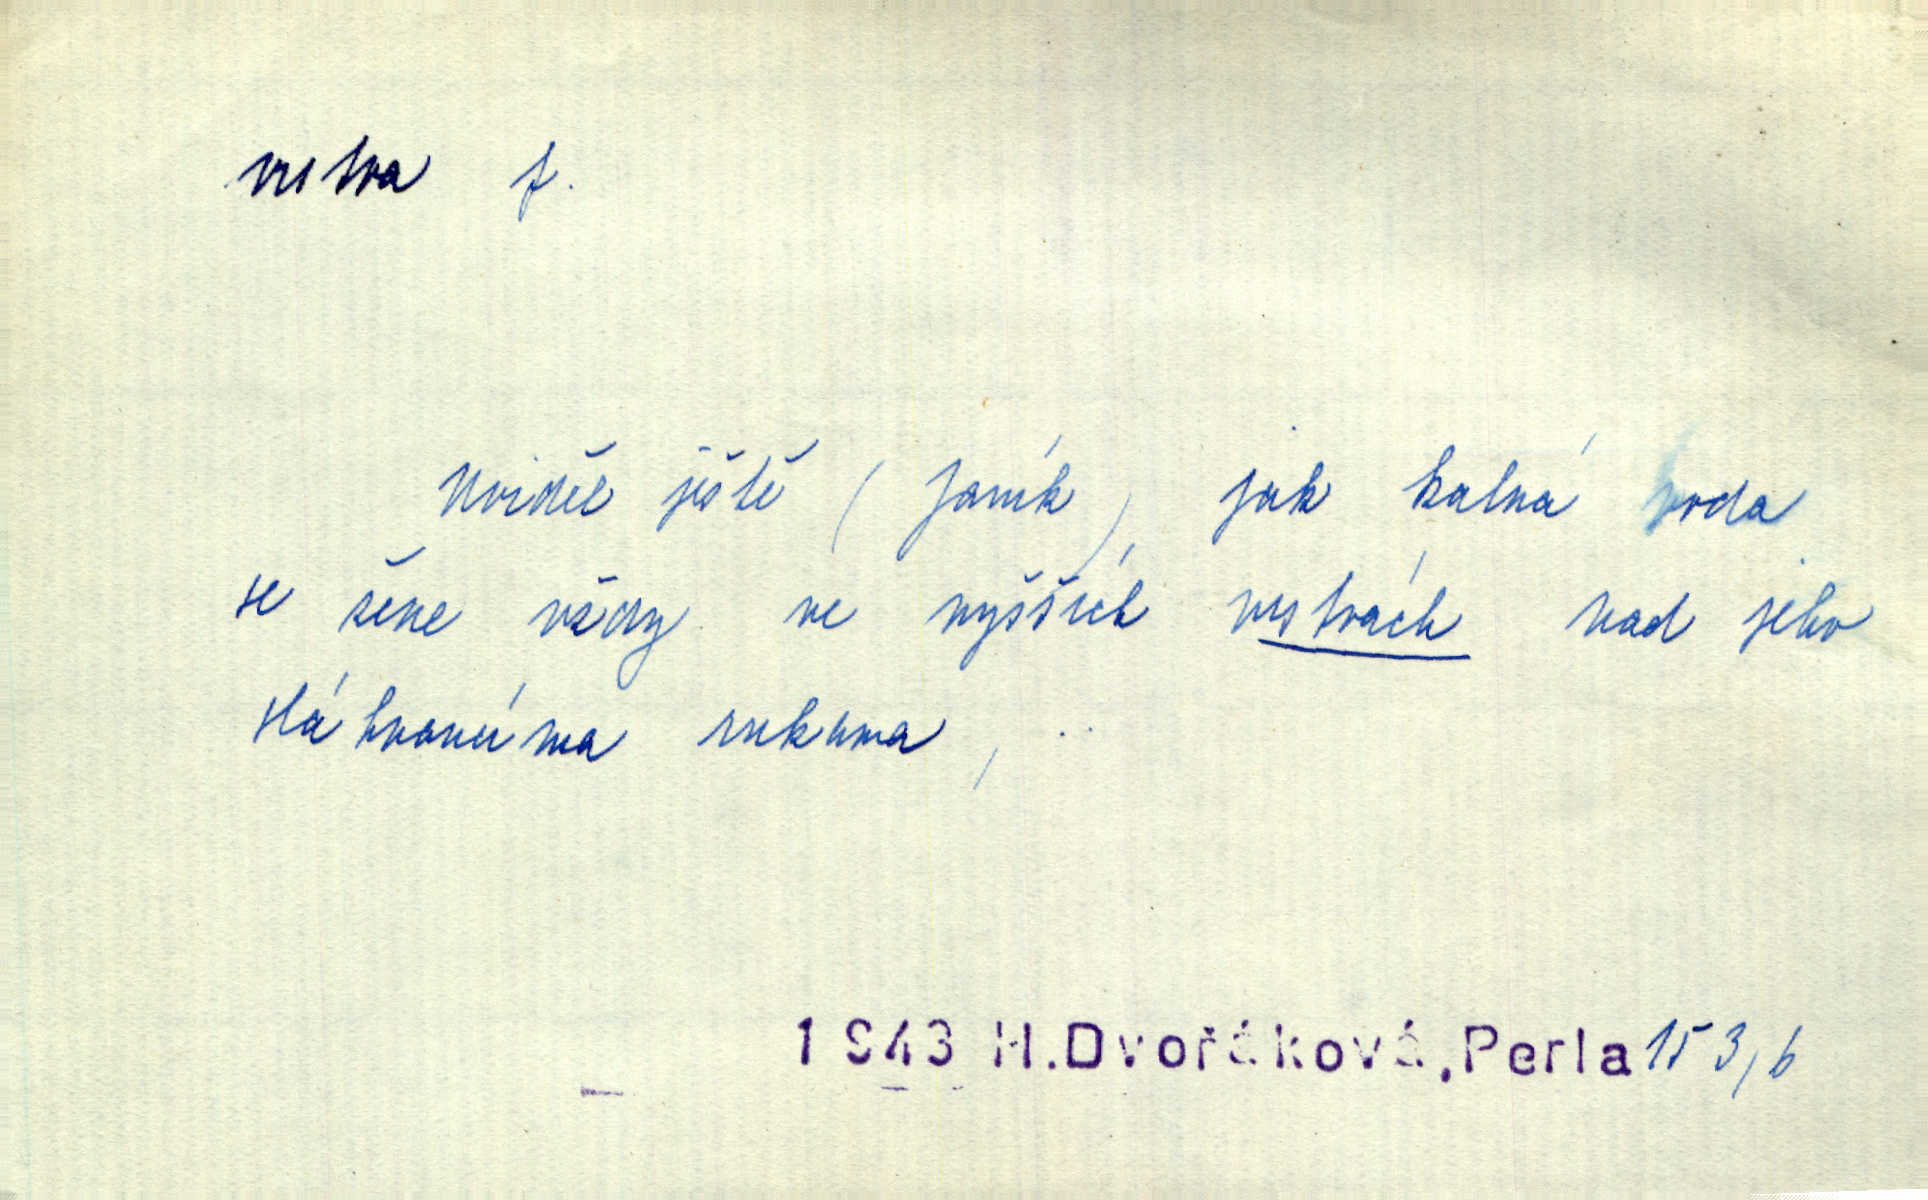 vrstva f.
Uviděl ještě (Janík), jak kalná voda
se žene vždy ve vyšších vrstvách nad jeho
stáhvanýma rukama, ..
1943 H.Dvořáková,Perla 153,6